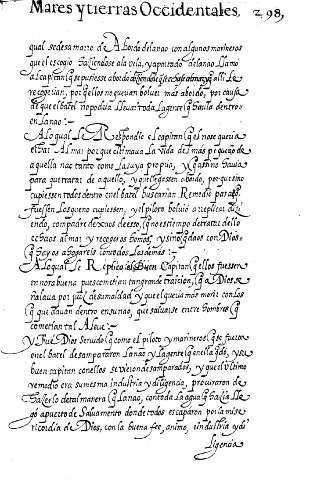 Mares y tierras Occidentales, 298,
qual se desamarro de Abordo de la nao con algunos marineros
que el escogio haziendose a la vela, y apartado de la nao llamo
al capitan que se pusiesse abordo
recogerian, porque ellos no querian bolver mas abordo, por causa
de que el batel no podria llevar toda la gente que havia dentro
en la nao:~
Al qual Se le Respondio el capitan que el no se queria
echar Al mar por que estimava La vida del mas pequeño de
aquella nao tanto como La suya propria, y que assi no havia
para que tratar de aquello, y que llegassen abordo, porque si no
cupiessen todos dentro en el batel buscarian Remedio para que
fuessen Los que no cupiessen, y el piloto bolvio a replicar dizi
endo, compadre de xaos de esto, que no es tiempo de tratar de ello
echaos al mar y recogeros hemos, y si no quedaos con Dios
que hoy os ahogareis con todos los demas:~
Al qual Se le Replico el Buen Capitan que ellos fuessen
en hora buena pues cometian tan grande traicion, que a Dios se
ñalava por juez de su maldad y que el queria mas morir con los
que quedavan dentro en su nao, que salvarse entre hombres que
cometian tal Aleve:~
y fue Dios servido que como el piloto y marineros que se fueron
en el batel desampararon La nao y La gente que en ella quedo, y su
buen capitan con ellos se vieron desamparados, y que el ultimo
remedio era su mesma industria y diligencia, procuraron de
hazerlo de tal manera que La nao, con toda La agua que hazia lle
go a puerto de Salvamento donde todos escaparon por la mise
ricordia de Dios, con la buena fee, animo, e industria y di
ligencia